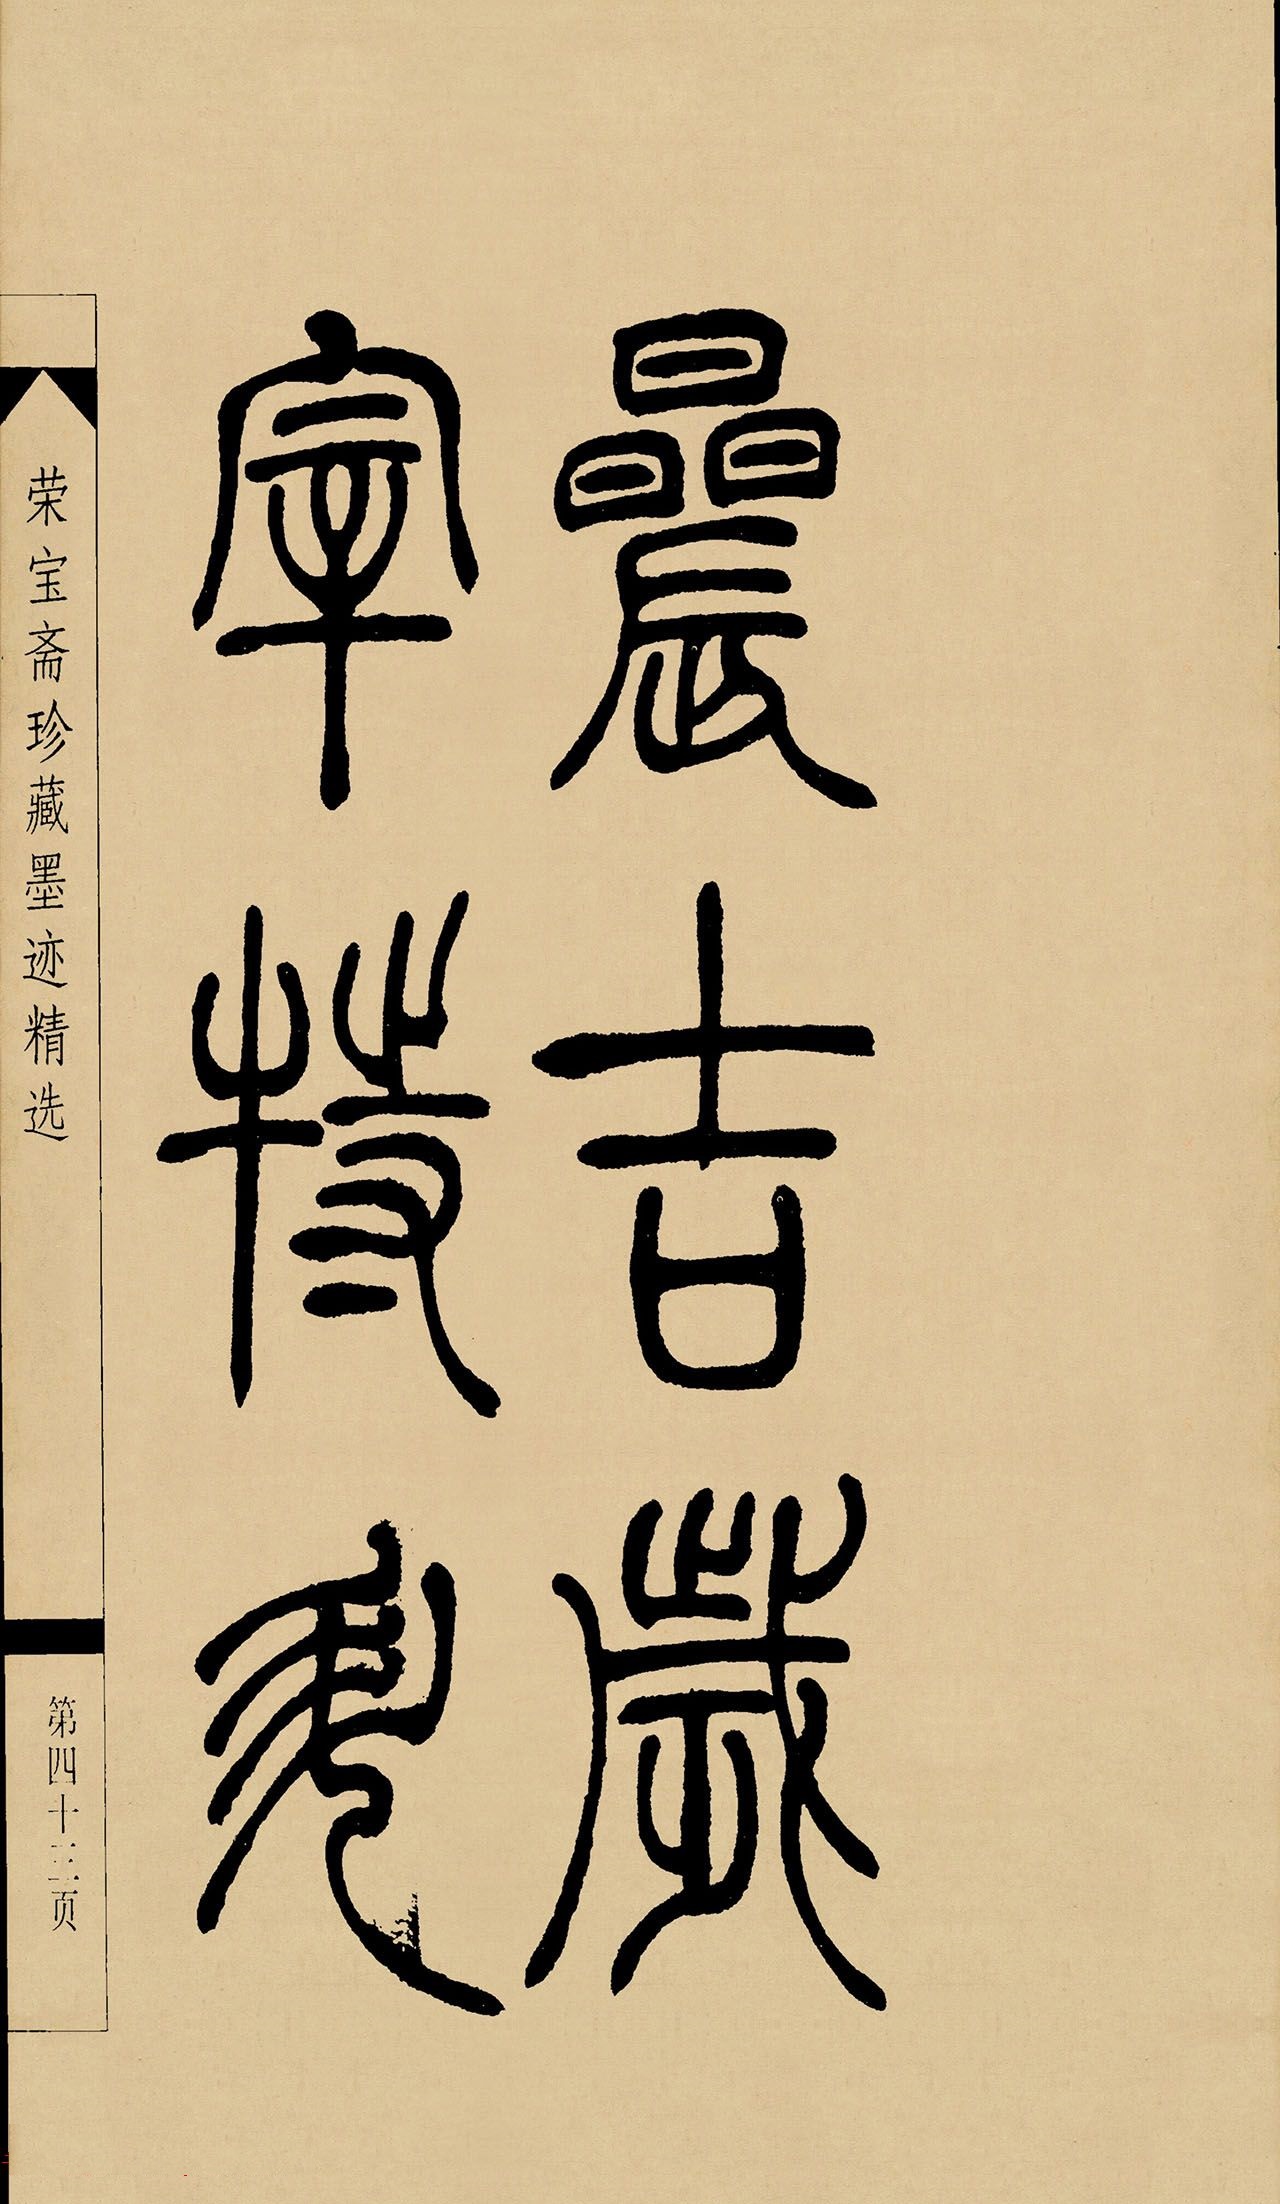 晨吉歲
宰特兔
荣宝斋珍藏墨迹精选
第四十三页